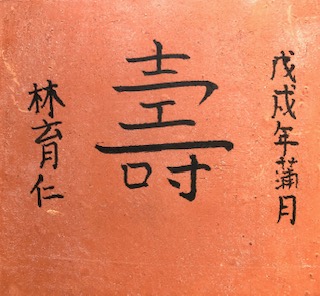 戊戌年蒲月
壽
林育仁